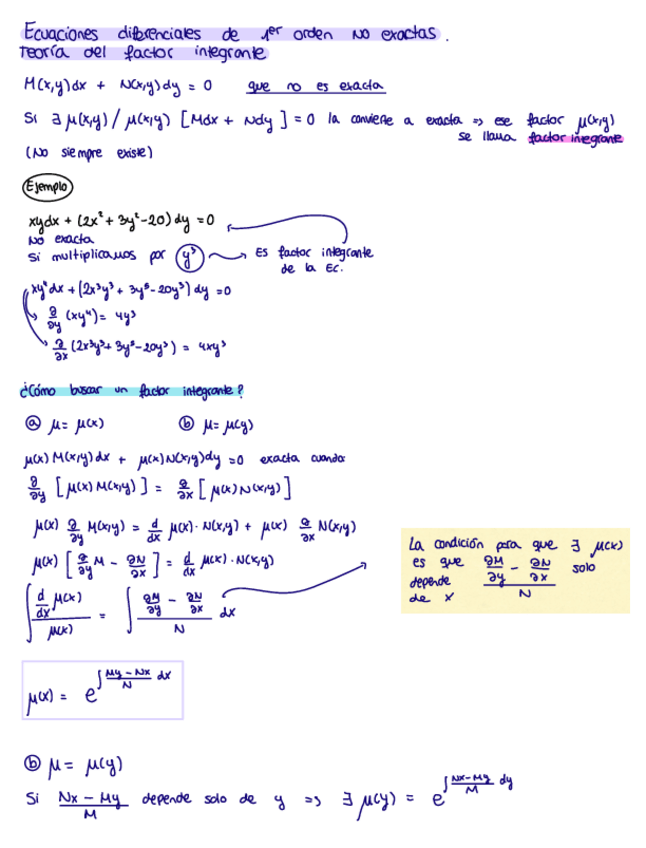 Ecuaciones diferenciales de 1er orden NO exactas.
Teoría del factor integrante
M(x,y)dx + N(x,y)dy = 0 que no es exacta
Si ∃ μ(x,y) / μ(x,y) [Mdx + Ndy] = 0 la convierte a exacta => ese factor μ(x,y)
se llama factor integrante
(No siempre existe)
Ejemplo
xydx + (2x² + 3y² - 20) dy = 0
No exacta
Si multiplicamos por y³ Es factor integrante
de la Ec.
xy⁴dx + (2x³y³ + 3y⁵ - 20y³) dy = 0
∂/∂y (xy⁴) = 4y³
∂/∂x (2x³y³ + 3y⁵ - 20y³) = 4xy³
¿Cómo buscar un factor integrante?
ⓐ μ = μ(x) ⓑ μ = μ(y)
μ(x) M(x,y)dx + μ(x)N(x,y)dy = 0 exacta cuando:
∂/∂y [μ(x) M(x,y)] = ∂/∂x [μ(x) N(x,y)]
μ(x) ∂/∂y M(x,y) = d/dx μ(x) · N(x,y) + μ(x) ∂/∂x N(x,y)
μ(x) [∂/∂y M - ∂N/∂x] = d/dx μ(x) · N(x,y)
∫ (d/dx μ(x)) / μ(x) = ∫ (∂M/∂y - ∂N/∂x) / N dx
La condición para que ∃ μ(x)
es que (∂M/∂y - ∂N/∂x) / N solo
depende
de x
μ(x) = e^(∫ (My - Nx)/N dx)
ⓑ μ = μ(y)
Si (Nx - My)/M depende solo de y => ∃ μ(y) = e^(∫ (Nx - My)/M dy)